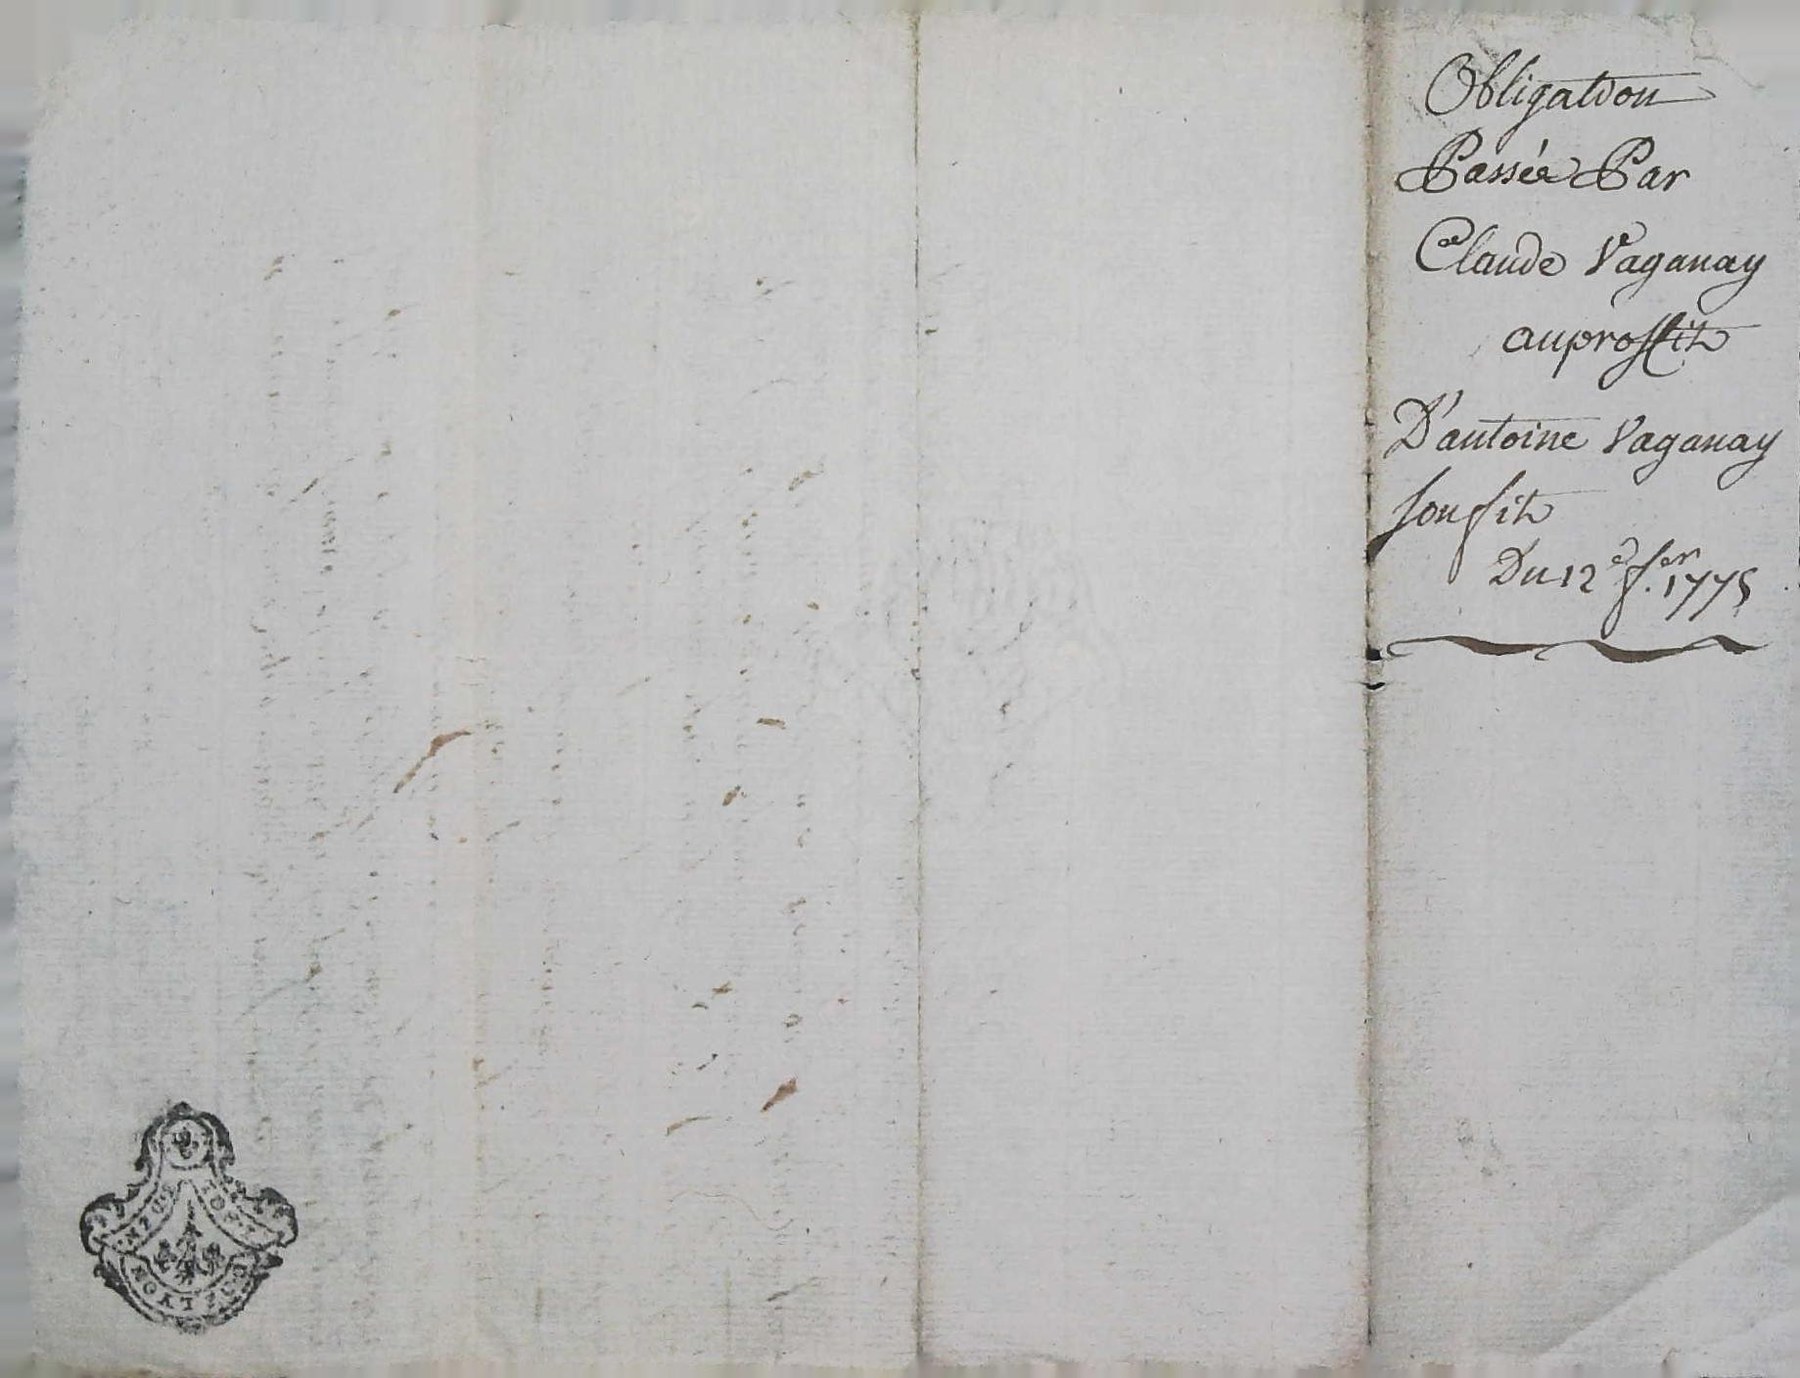 Obligation
Passée Par
Claude Vaganay
auproffit
D'antoine Vaganay
son fils
Du 12e f.er 1775
LYON